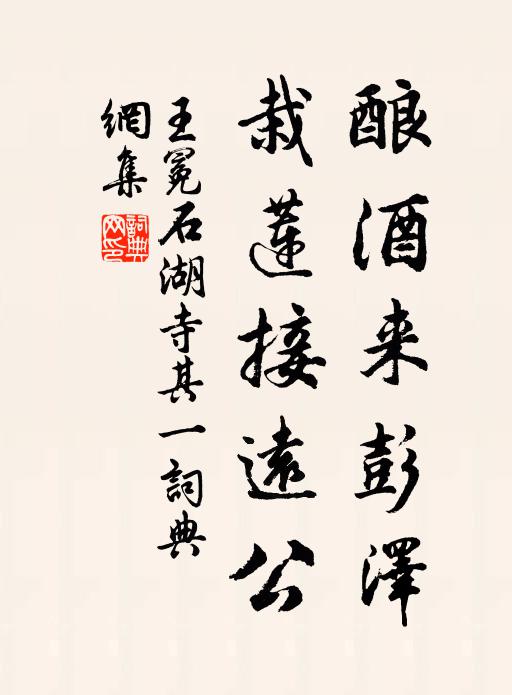 酿酒来彭澤
栽蓮接遠公
王冕石湖寺其一詞典
網集
詞典網印